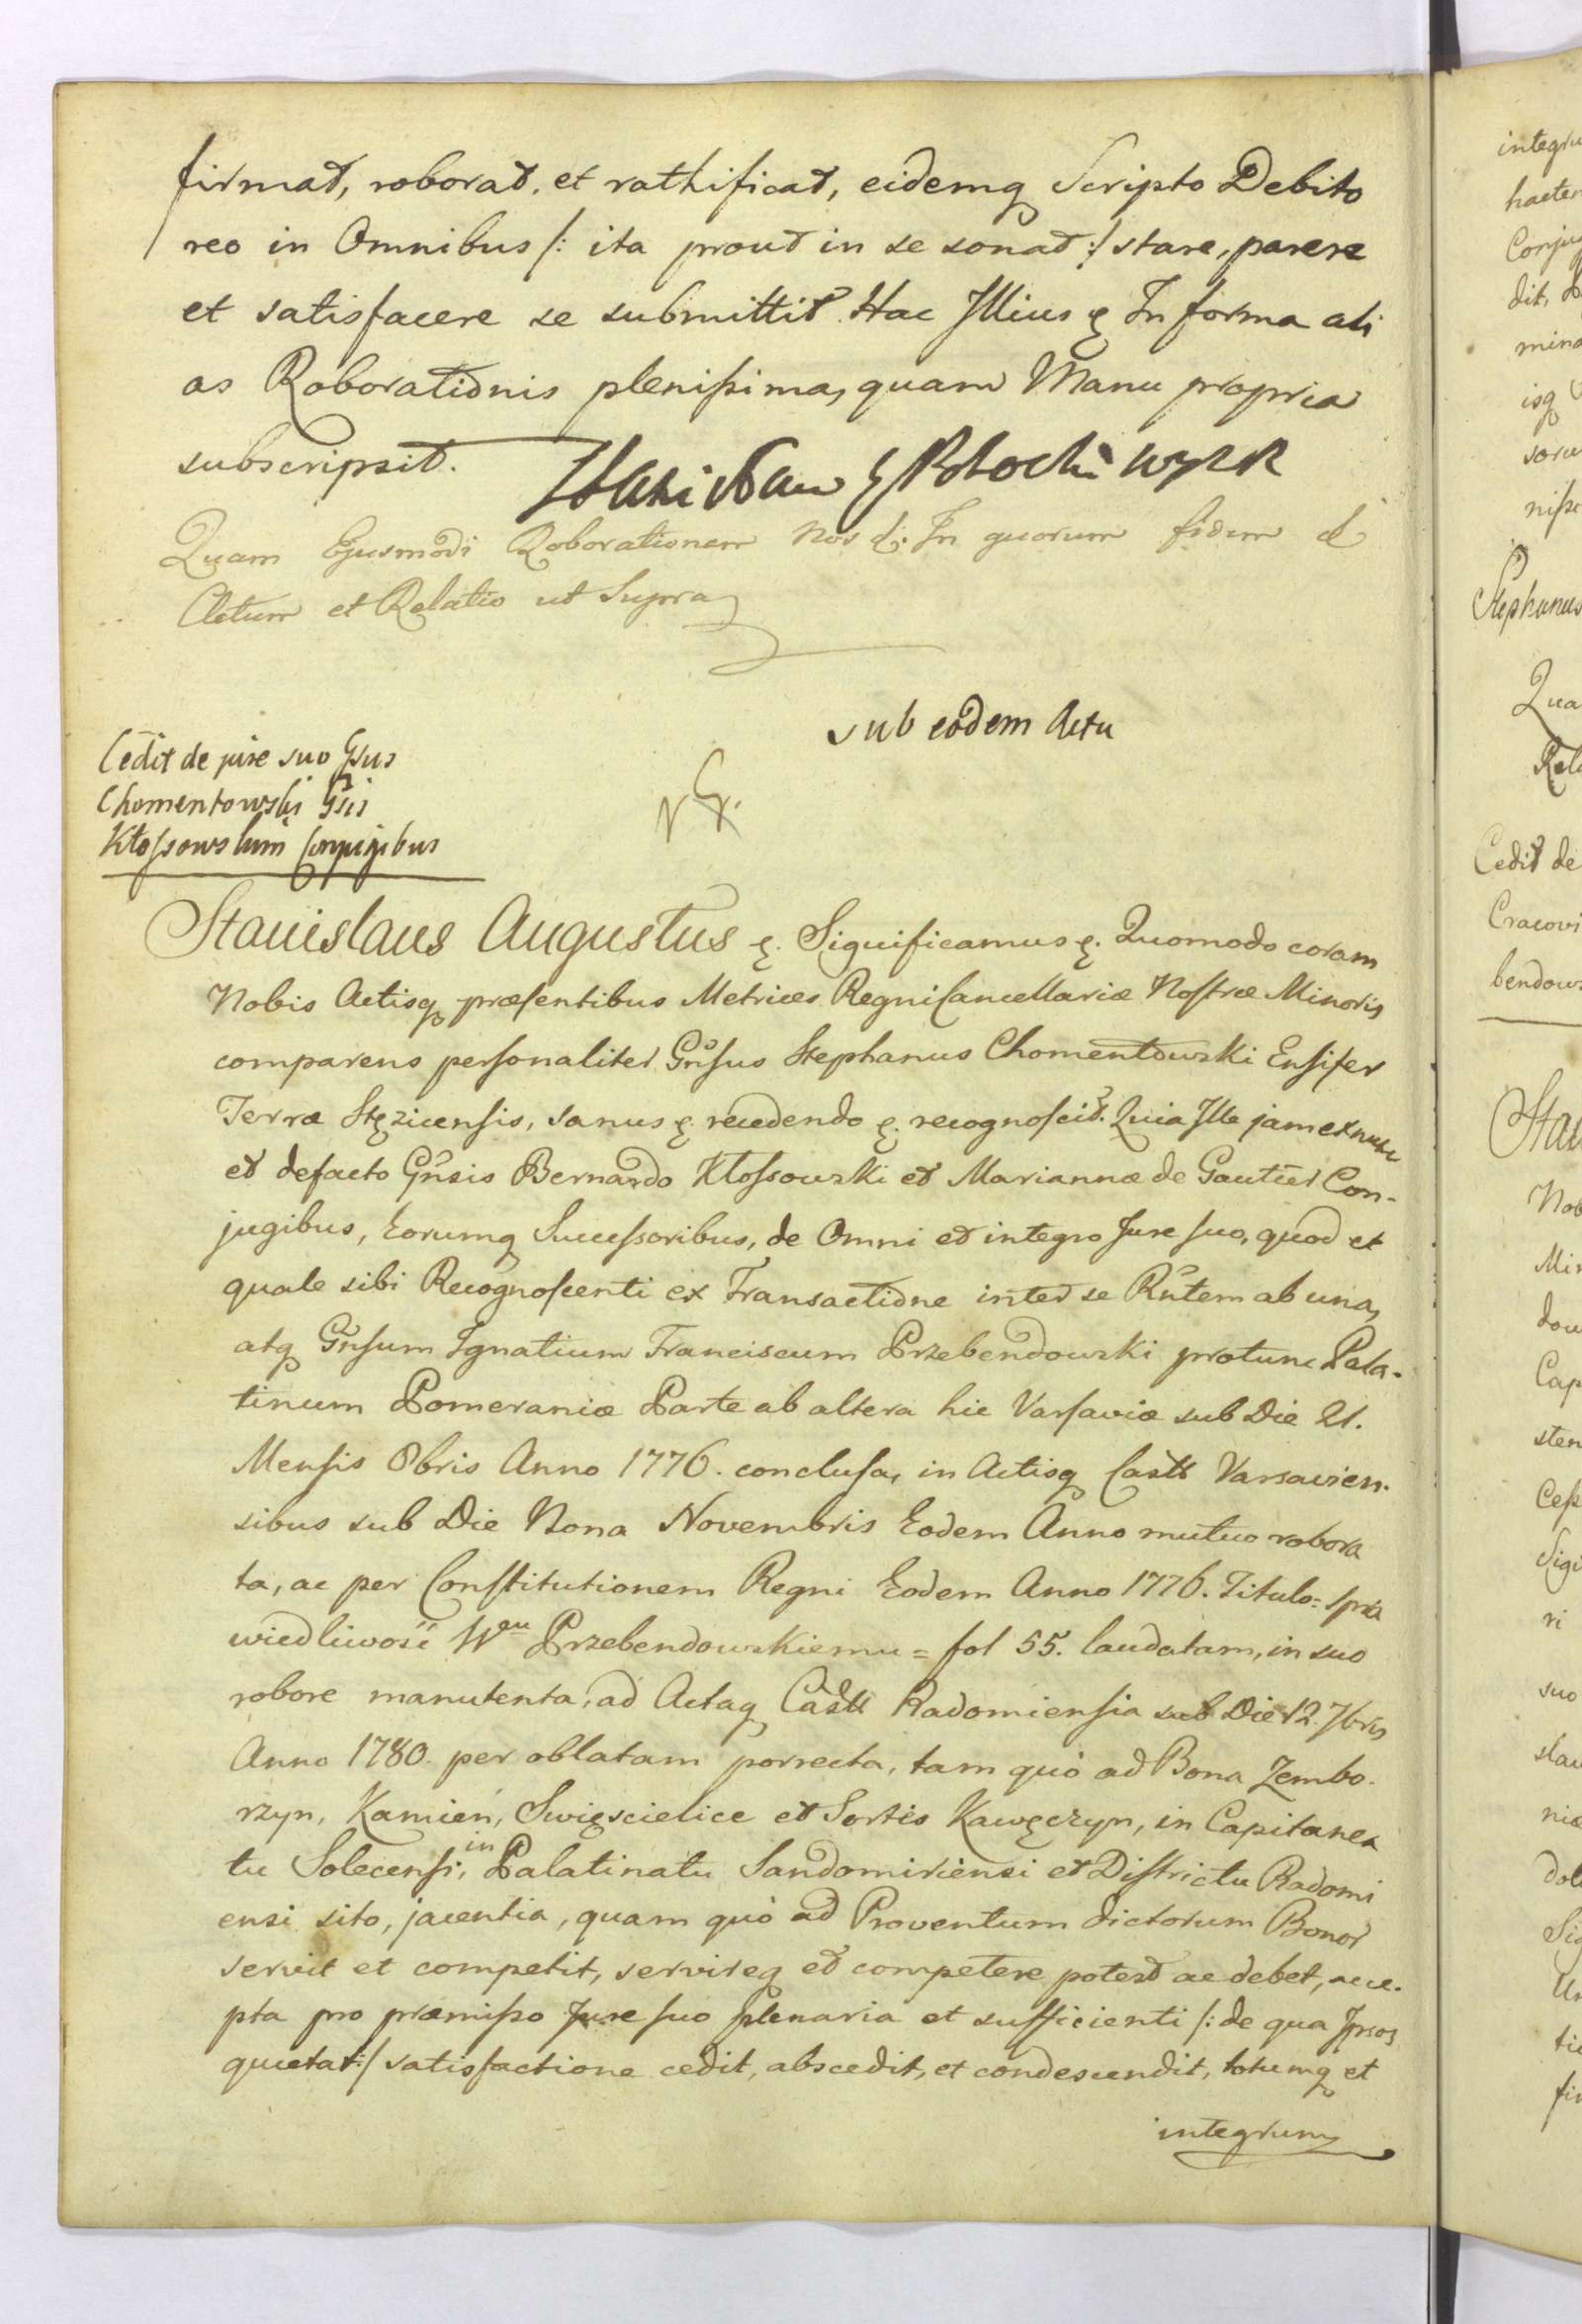 firmat, roborat, et rathificat, eidemq Scripto Debito
reo in Omnibus /: ita prout in se sonat :/ stare, parere
et satisfacere se submittit Hac Illius ę In forma ali
as Roborationis plenissima, quam Manu propria
subscripsit.
Quam Ejusmodi Roborationem Nos ę: In quorum fidem ę
Actum et Relatio ut Supra
sub eodem Actu
Cedit de jure suo Gsus
Chomentowski Gsis
Kłossowskim Conjugibus
Stanislaus Augustus ę. Significamus ę. Quomodo coram
Nobis Actisq præsentibus Metrices Regni Cancellariæ Nostræ Minoris
comparens personaliter Gnsus Stephanus Chomentowski Ensifer
Terræ Stęzicensis, sanus ę. recedendo ę. recognoscit. Quia Ille jam ex nunc
et defacto Gnsis Bernardo Kłossowski et Mariannæ de Gautier Con-
jugibus, Eorumq Successoribus, de Omni et integro Jure suo, quod et
quale sibi Recognoscenti ex Transactione inter se Rntem ab una,
atq Gnsum Ignatium Franciscum Przebendowski protunc Pala-
tinum Pomeraniæ Parte ab altera hic Varsaviæ sub Die 21.
Mensis 8bris Anno 1776. conclusa, in Actisq Castt Varsavien.
sibus sub Die Nona Novembris Eodem Anno mutuo robora
ta, ac per Constitutionem Regni Eodem Anno 1776. Titulo = Spra
wiedliwość Wmu Przebendowskiemu = fol 55. laudatam, in suo
robore manutenta, ad Actaq Castt Radomiensia sub Die 12. 7bris
Anno 1780. per oblatam porrecta, tam quò ad Bona Zembo.
rzyn, Kamień, Swięscielice et Sortis Kawęczyn, in Capitanea
tu Solecensi, in Palatinatu Sandomiriensi et Districtu Radomi
ensi sito, jacentia, quam quò ad Proventum dictorum Bonor
servit et competit, servireq et competere potest ac debet, acce.
pta pro præmisso Jure suo plenaria et sufficienti /: de qua Ipsos
quietat :/ satisfactione cedit, abscedit, et condescendit, totumq et
integrum